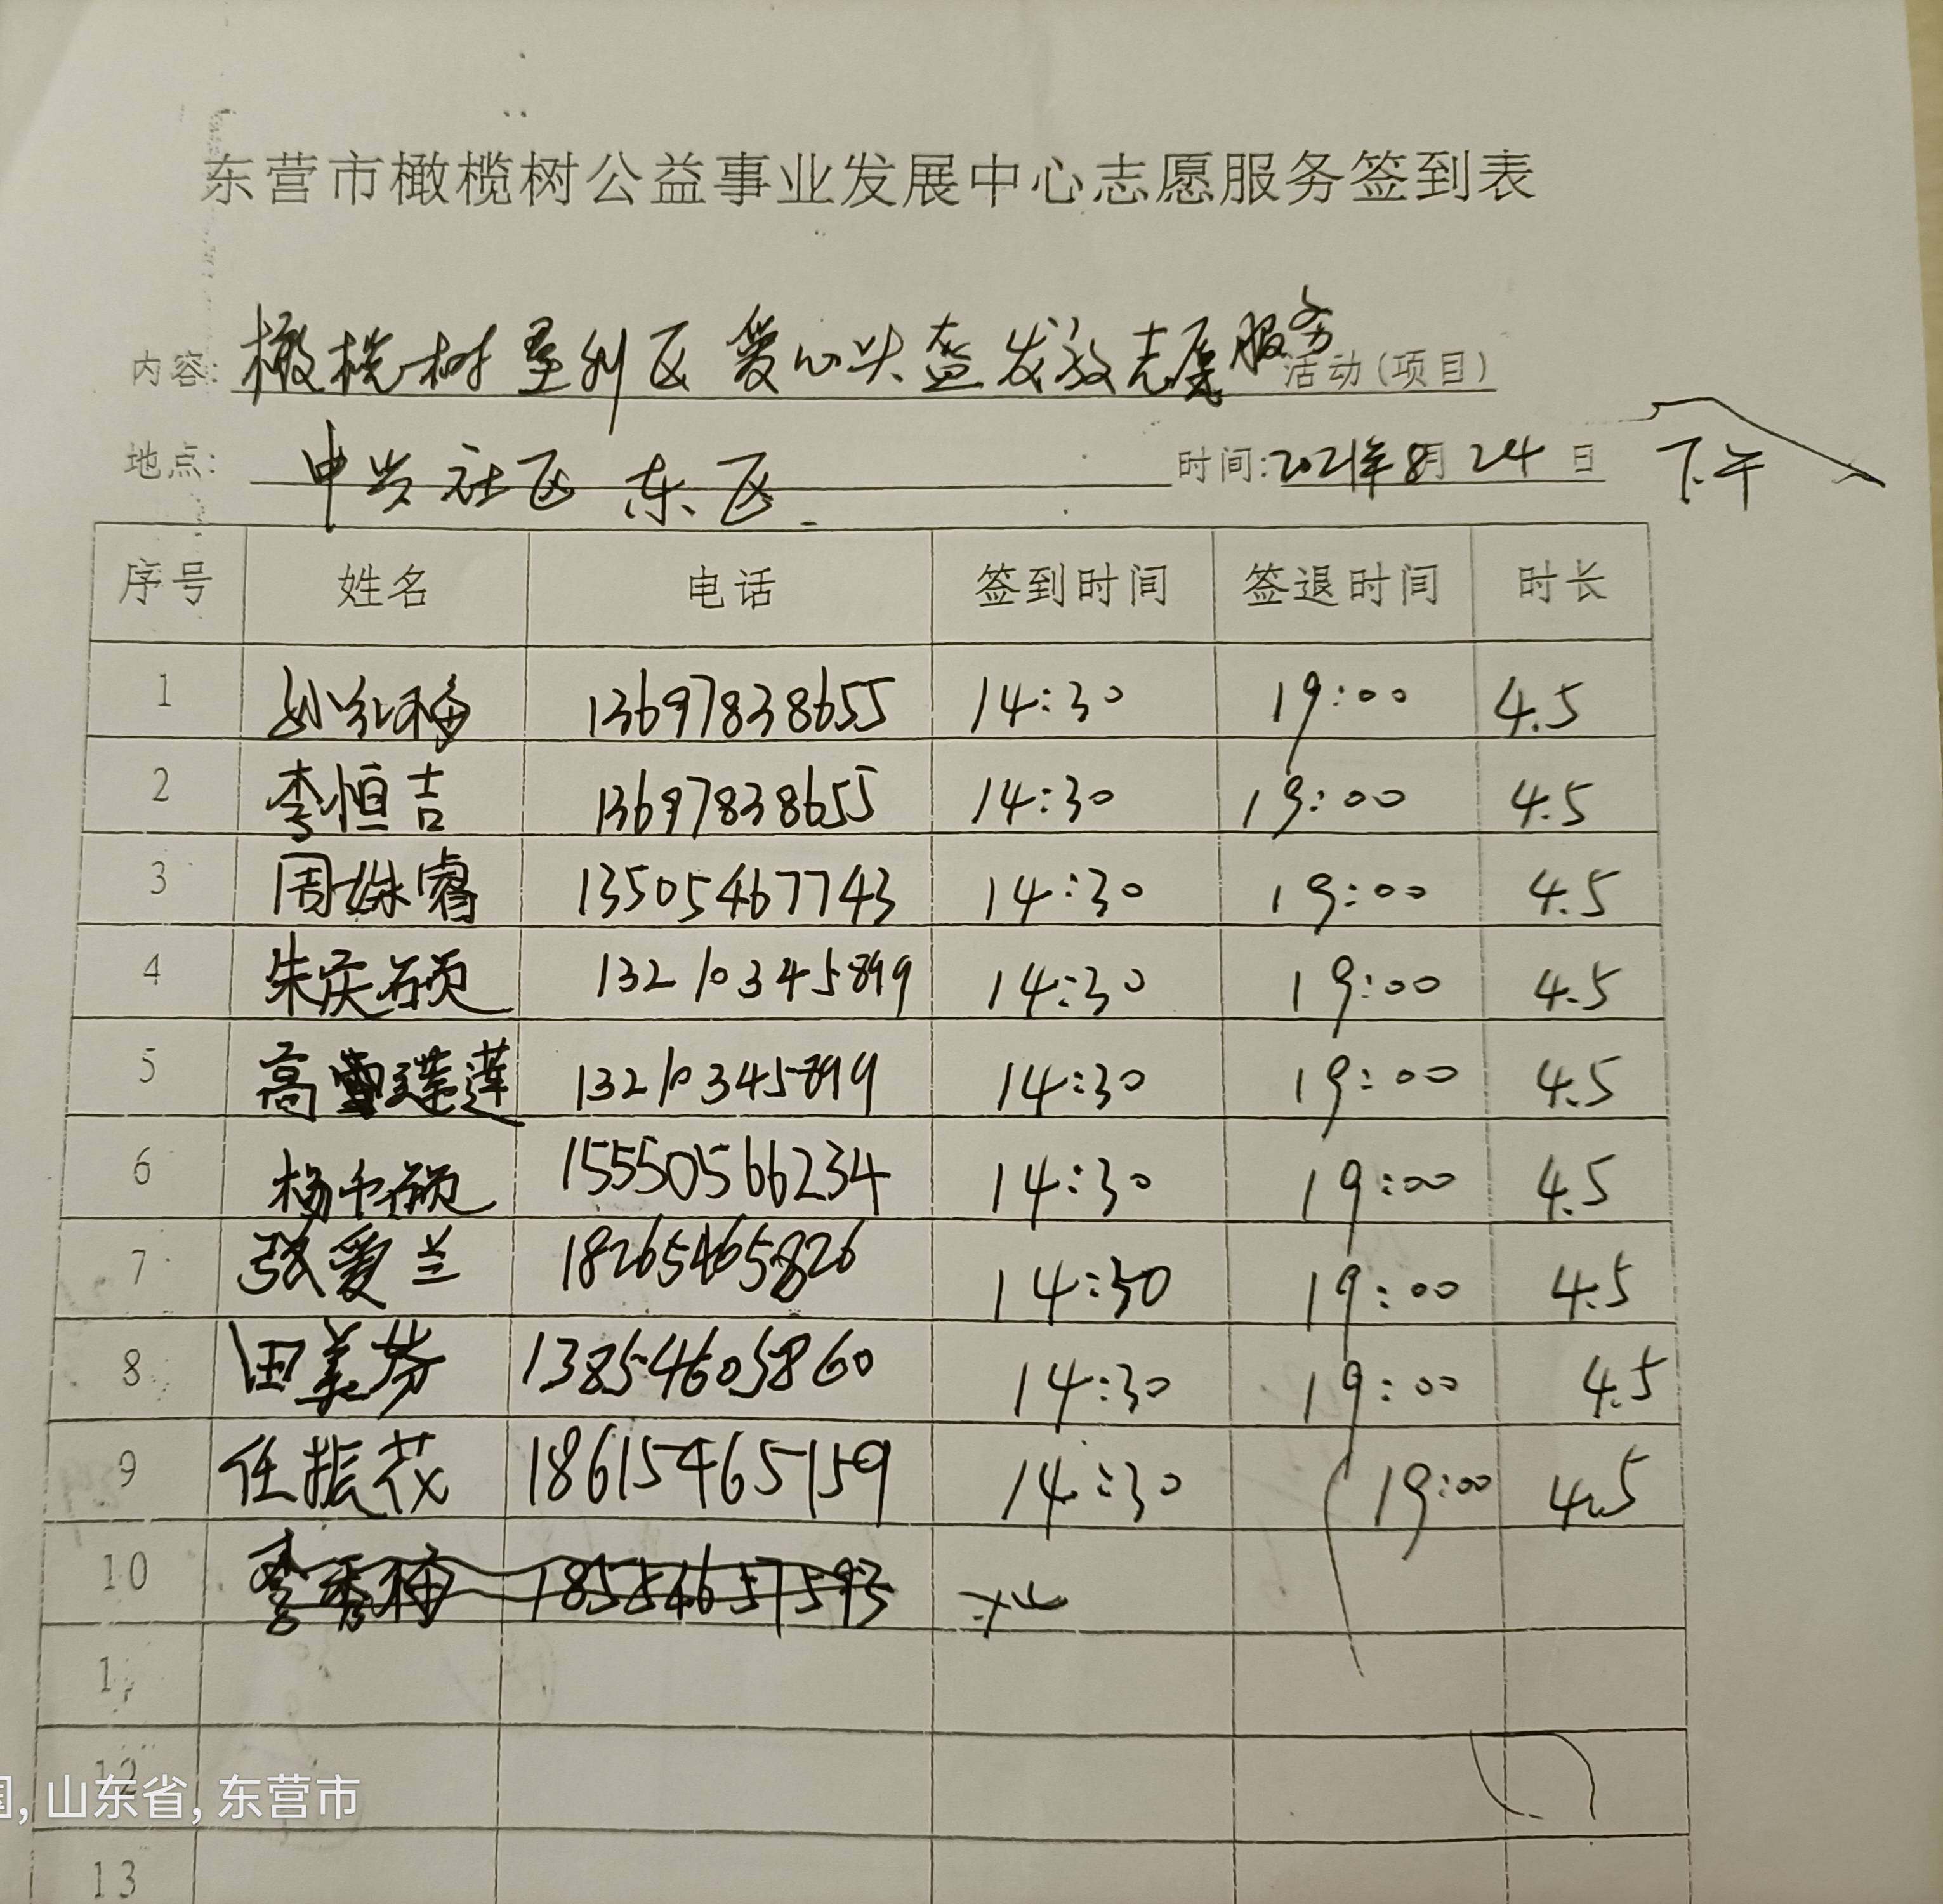 东营市橄榄树公益事业发展中心志愿服务签到表
内容: 橄榄树垦利区爱心头盔发放志愿服务 活动(项目)
地点: 中兴社区东区 时间:2021年8月24日 下午
序号 姓名 电话 签到时间 签退时间 时长
1 13697838655 14:30 19:00 4.5
2 李恒吉 13697838655 14:30 19:00 4.5
3 周姝睿 13505467743 14:30 19:00 4.5
4 朱庆硕 13210345899 14:30 19:00 4.5
5 高莲莲 13210345899 14:30 19:00 4.5
6 15550566234 14:30 19:00 4.5
7 张爱兰 18265465826 14:30 19:00 4.5
8 田美芬 13854605860 14:30 19:00 4.5
9 任振花 18615465159 14:30 19:00 4.5
10 李秀梅 18554657593
12
国, 山东省, 东营市
13